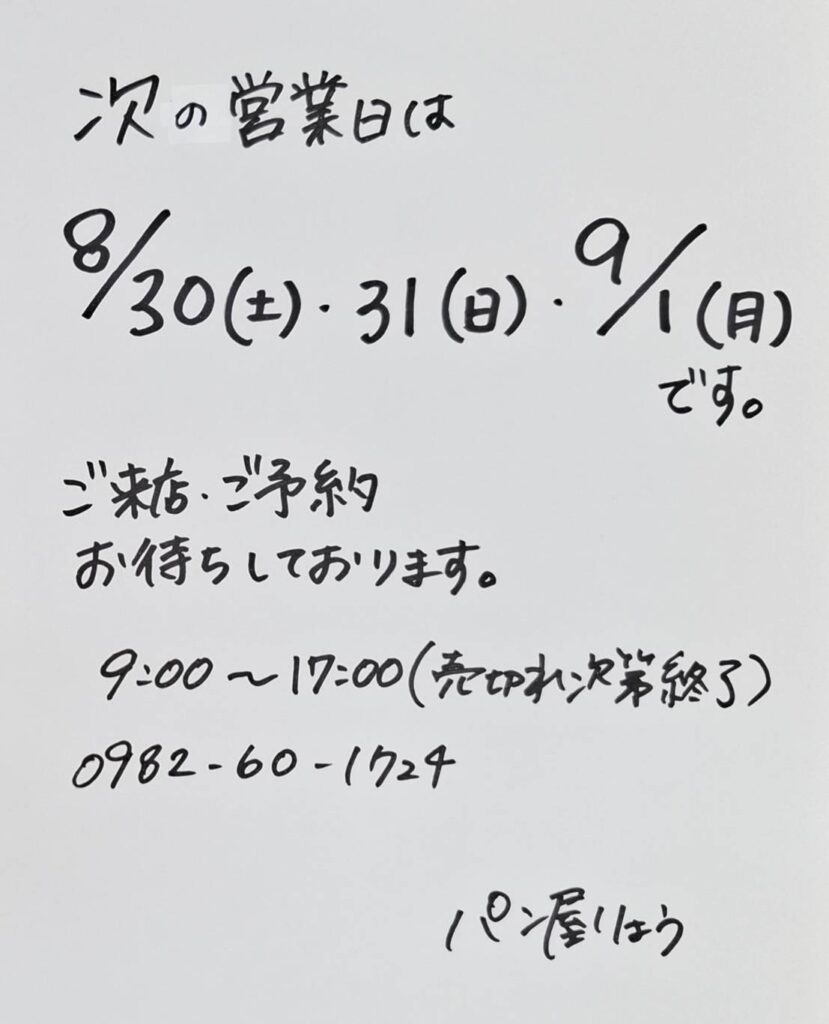 次の営業日は
8/30(土)・31(日)・9/1(月)
です。
ご来店・ご予約
お待ちしております。
9:00〜17:00(売切れ次第終了)
0982-60-1724
パン屋りほう